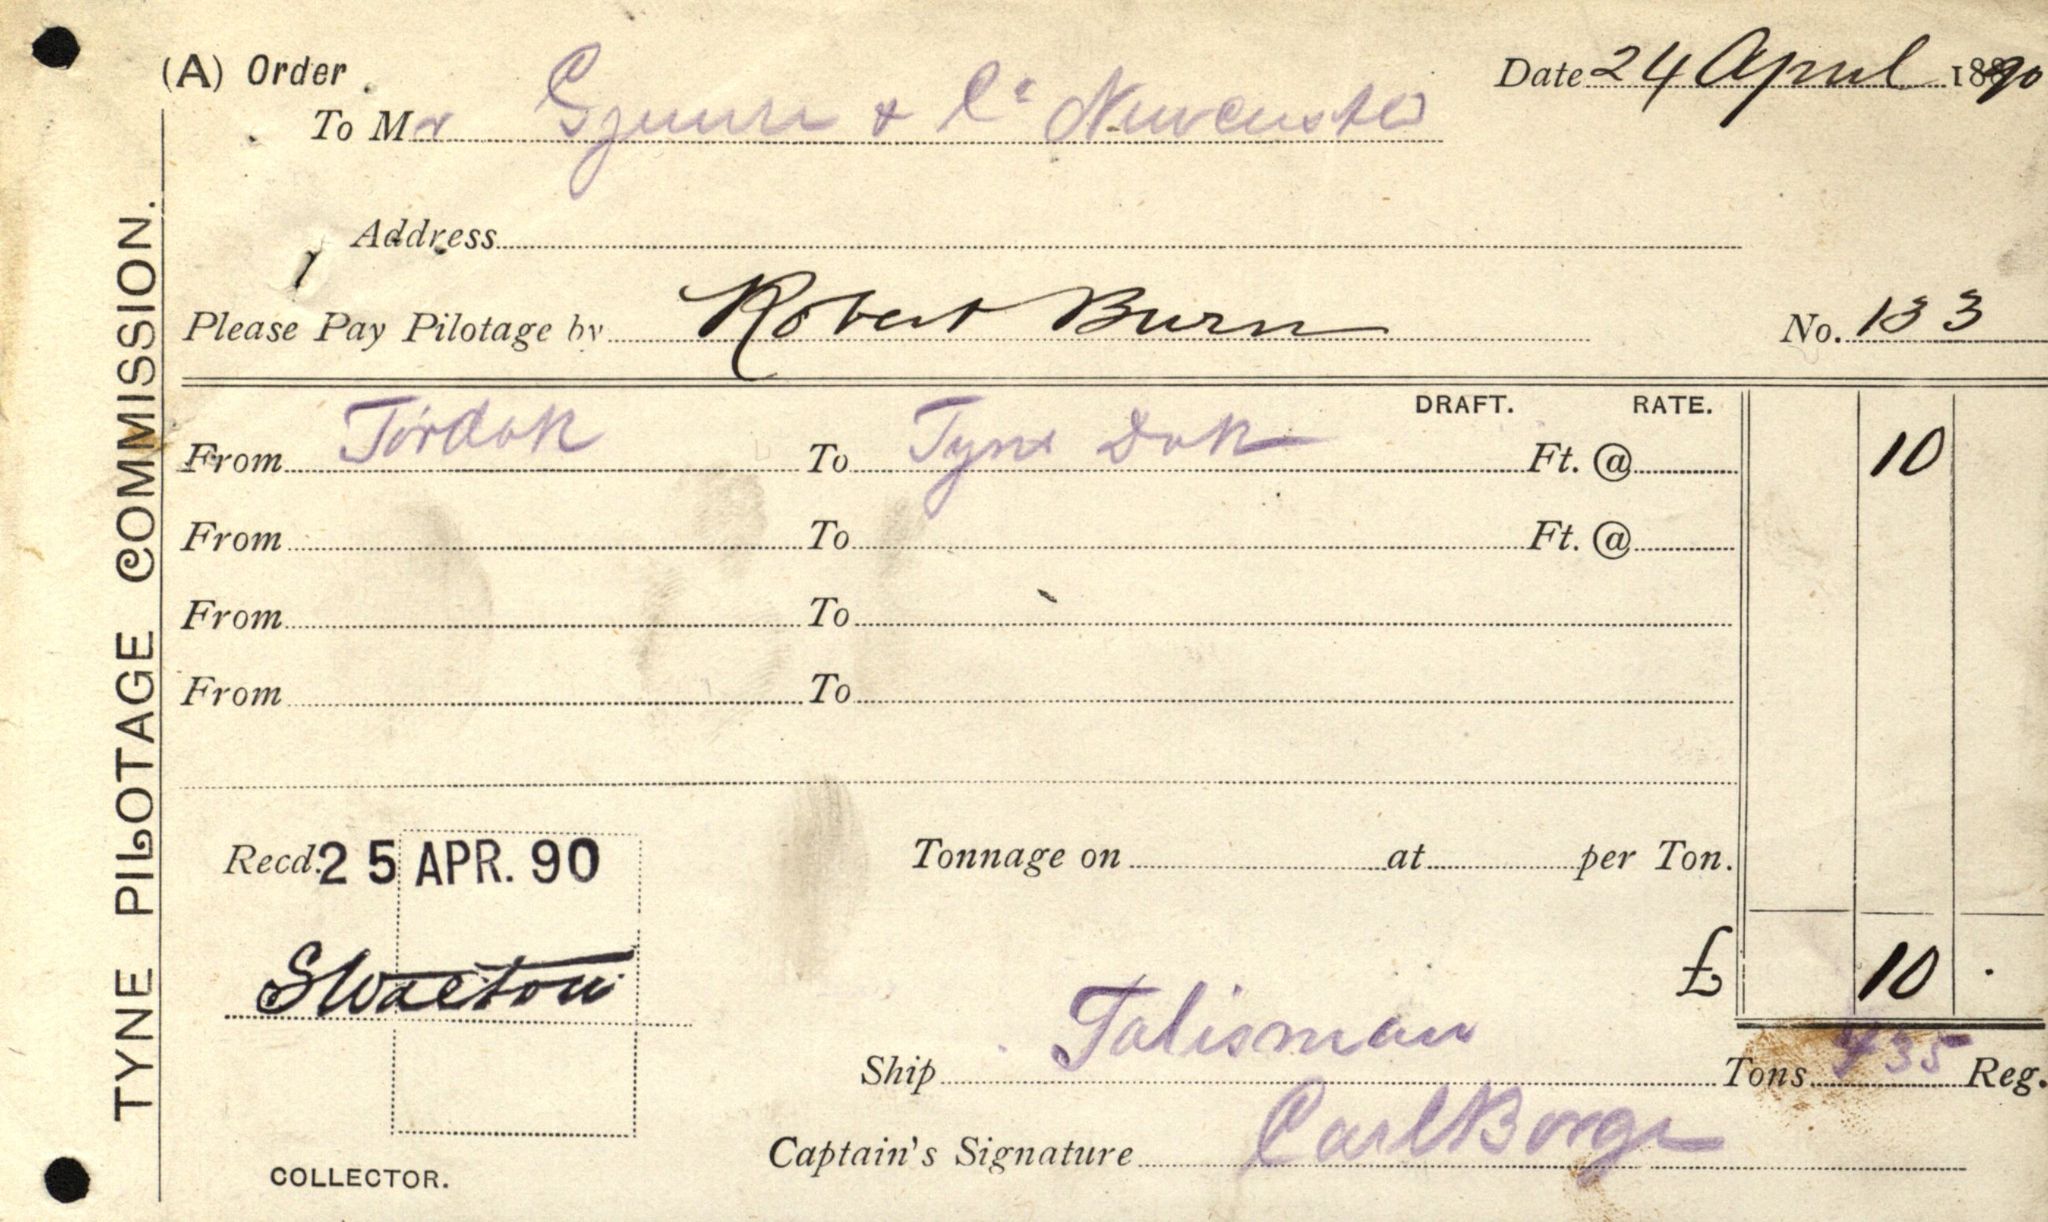 TYNE PILOTAGE COMMISSION.
(A) Order
Date 24 April 1890
To Mr & Co
Address
Please Pay Pilotage by Robert Burn No. 133
DRAFT. RATE.
From Tördok To Tyne Dok Ft. @ 10
From To Ft. @
From To
From To
Recd. 25 APR. 90
Tonnage on at per Ton.
£ 10 .
Ship Talisman Tons 435 Reg.
Captain's Signature Carl Borge
COLLECTOR.